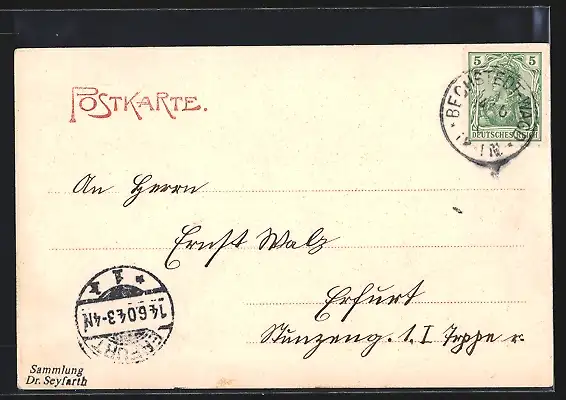 POSTKARTE.
5 5
DEUTSCHES REICH
BECHSTEDT-WAGD
An Herrn
Ernst Walz
Erfurt
Stunzeng. 1. I Treppe r.
* 1 k
14.6.04.3-4N
ERFURT
Sammlung
Dr. Seyfarth